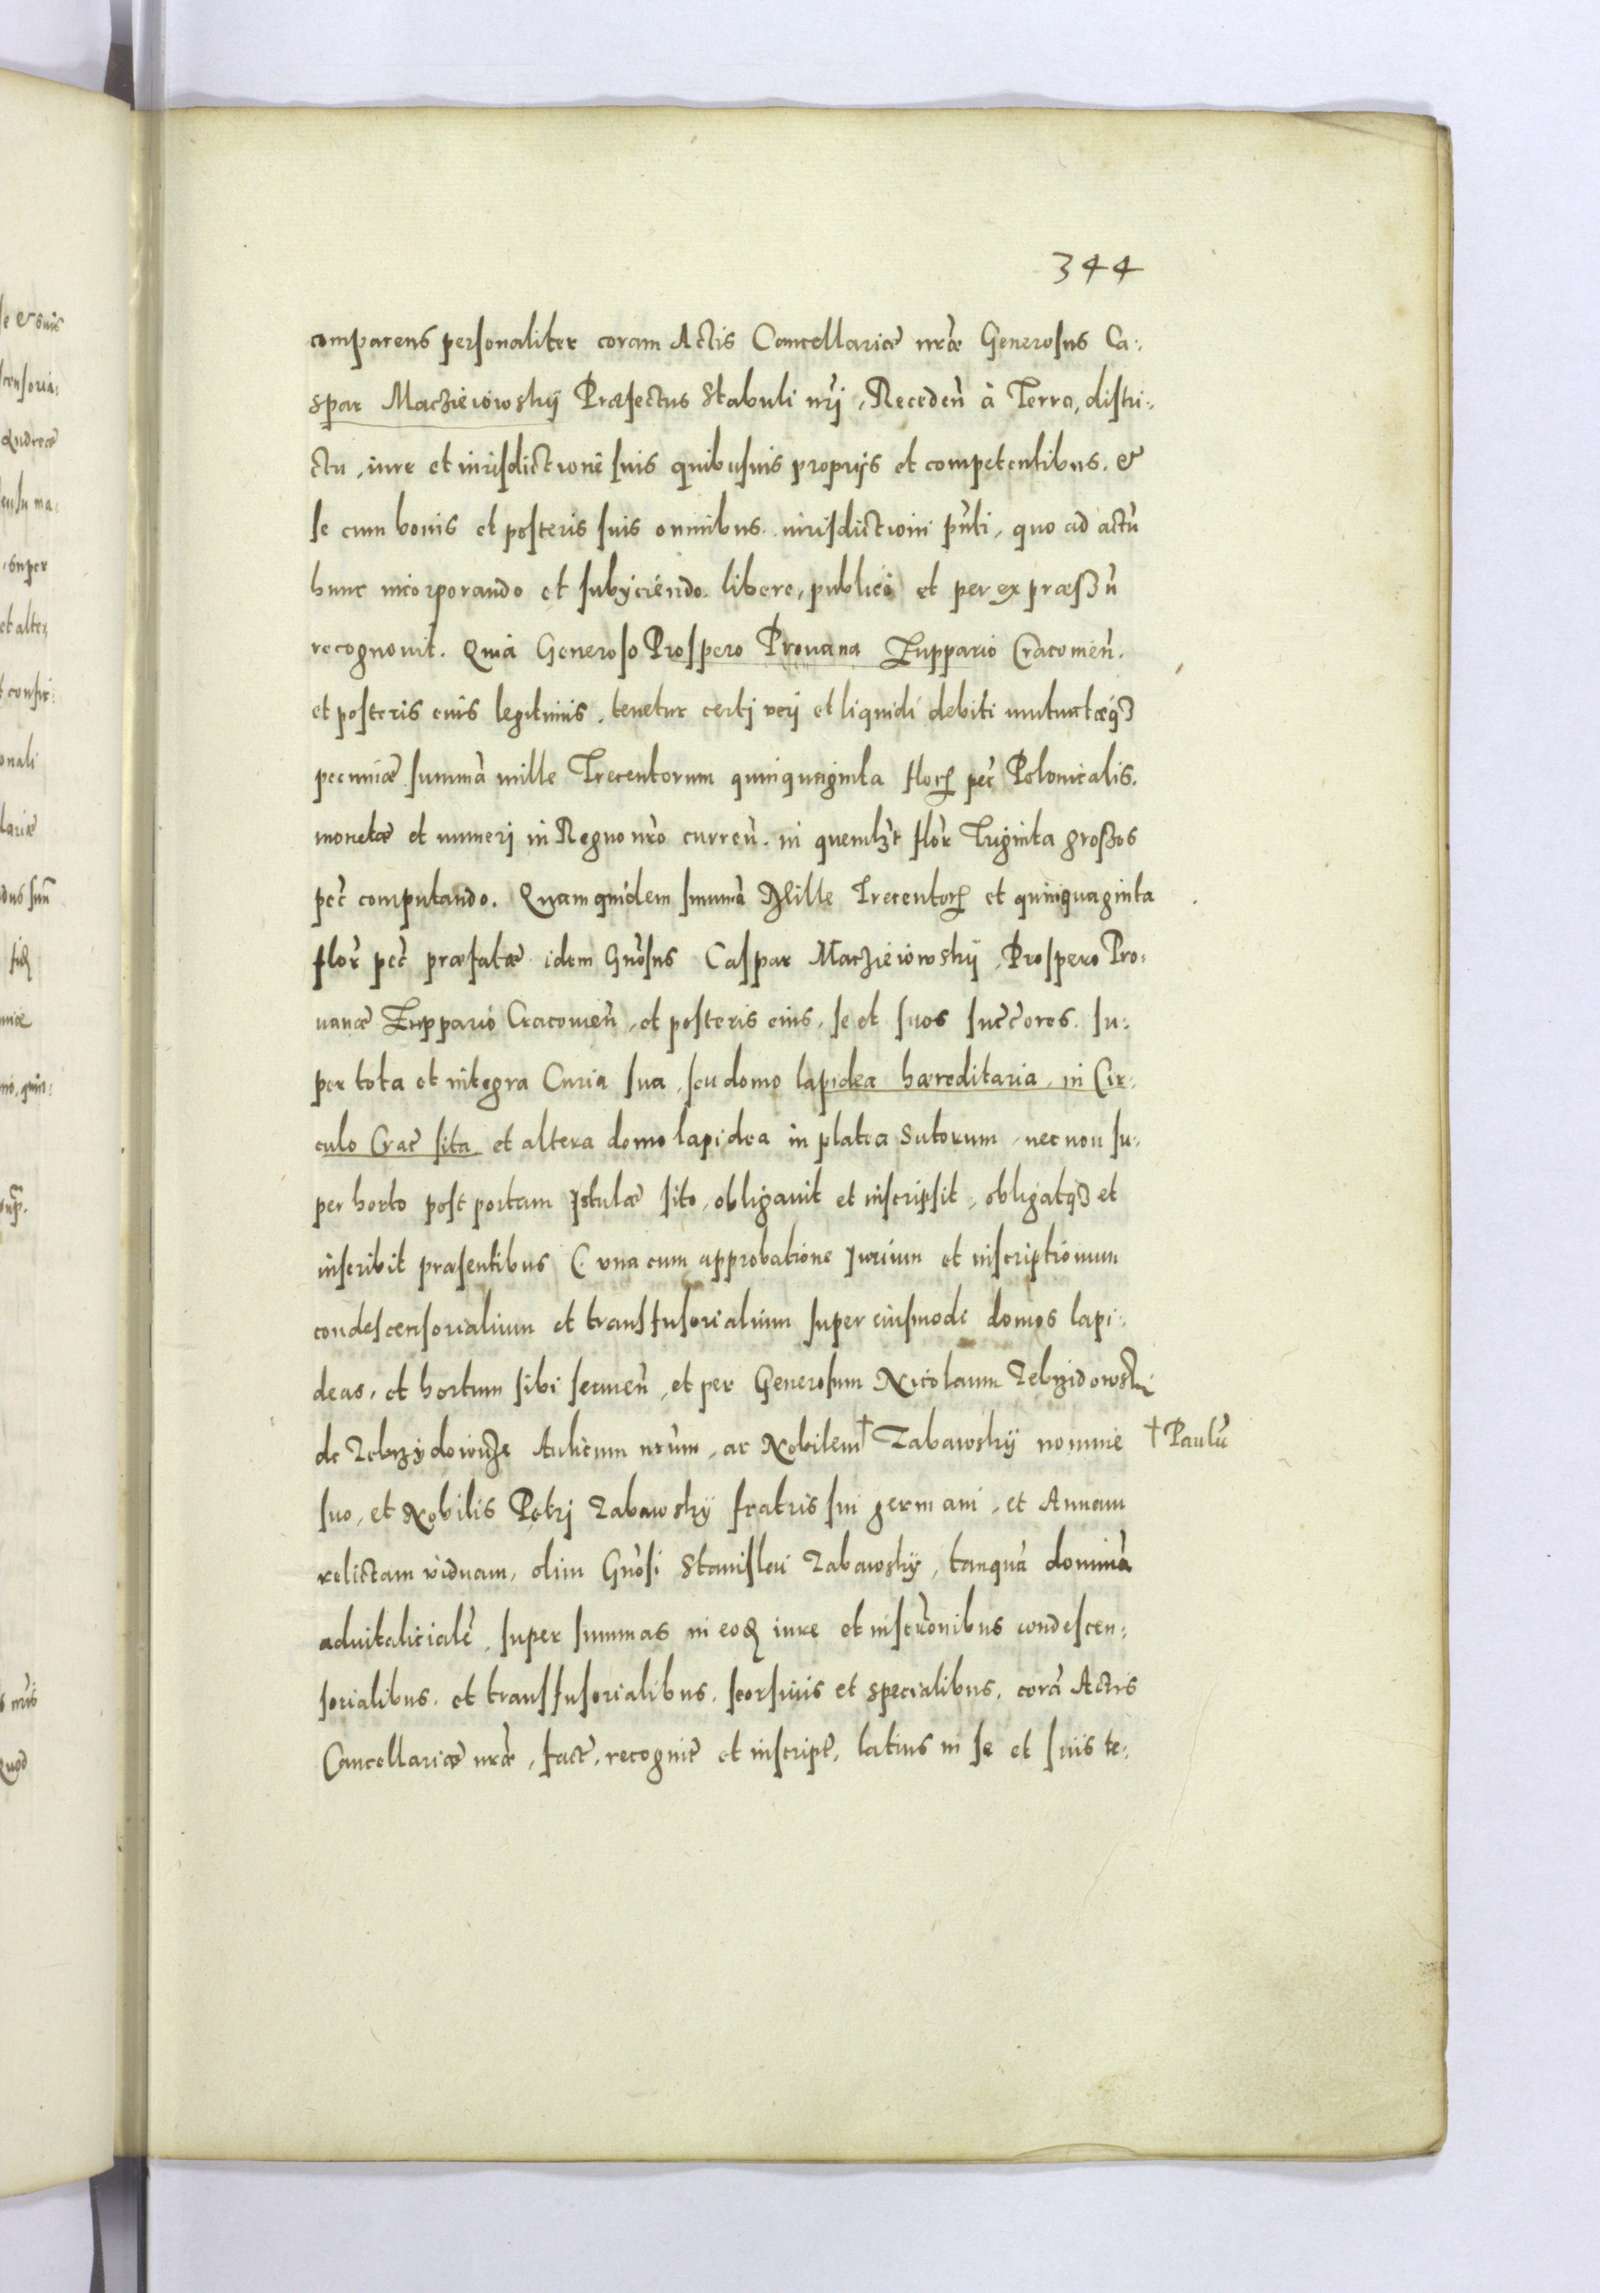 344
comparens personaliter coram Actis Cancellariæ nr̃æ Generosus Ca:
spar Maczieiowskij Præfectus Stabuli nr̃j, Recedeñ à Terra, distri:
ctu, iure et iurisdictione suis quibusuis proprijs et competentibus, &
se cum bonis et posteris suis omnibus iurisdictioni pñti, quo ad actũ
hunc incorporando et subijciendo libere, publice et per expræssũ
recognouit. Quia Generoso Prospero Prouana Zuppario Cracouieñ.
et posteris eius legitimis, tenetur certj verj et liquidi debiti mutuatæqȝ
pecuniæ summã mille Trecentorum quinquaginta floꝝ pec̃ Polonicalis.
monetæ et numerj in Regno nr̃o curreñ. in quemlȝt flor̃ Triginta grossos
pec̃ computando. Quamquidem summã Mille Trecentoꝝ et quinquaginta
flor̃ pec̃ præfatæ idem Gñosus Caspar Maczieiowskij, Prospero Pro:
uanæ Zuppario Cracouieñ, et posteris eius, se et suos succ̃ores, su:
per tota et integra Curia sua, seu domo lapidea hæreditaria, in Cir:
culo Crac̃ sita et altera domo lapidea in platea Sutorum, necnon su:
per horto post portam Istulæ sito, obligauit et inscripsit, obligatqȝ et
inscribit præsentibus (: vna cum approbatione Jurium et inscriptionum
condescensorialium et transfusorialium super eiusmodi domos lapi:
deas, et hortum sibi serueñ, et per Generosum Nicolaum Zebrzidowski
de Zebrzydowicze Aulicum nr̃um, ac Nobilem † Zabawskij nomine † Paulũ
suo, et Nobilis Petrj Zabawskij fratris sui germani, et Annam
relictam viduam, olim Gñosi Stanislai Zabawskij, tanquã dominã
aduitalicialẽ, super summas in eoꝝ iure et inscr̃onibus condescen:
sorialibus, et transfusorialibus, seorsiuis et specialibus, corã Actis
Cancellariæ nr̃æ, fact̃, recognit̃ et inscript̃, latius in se et suis te: